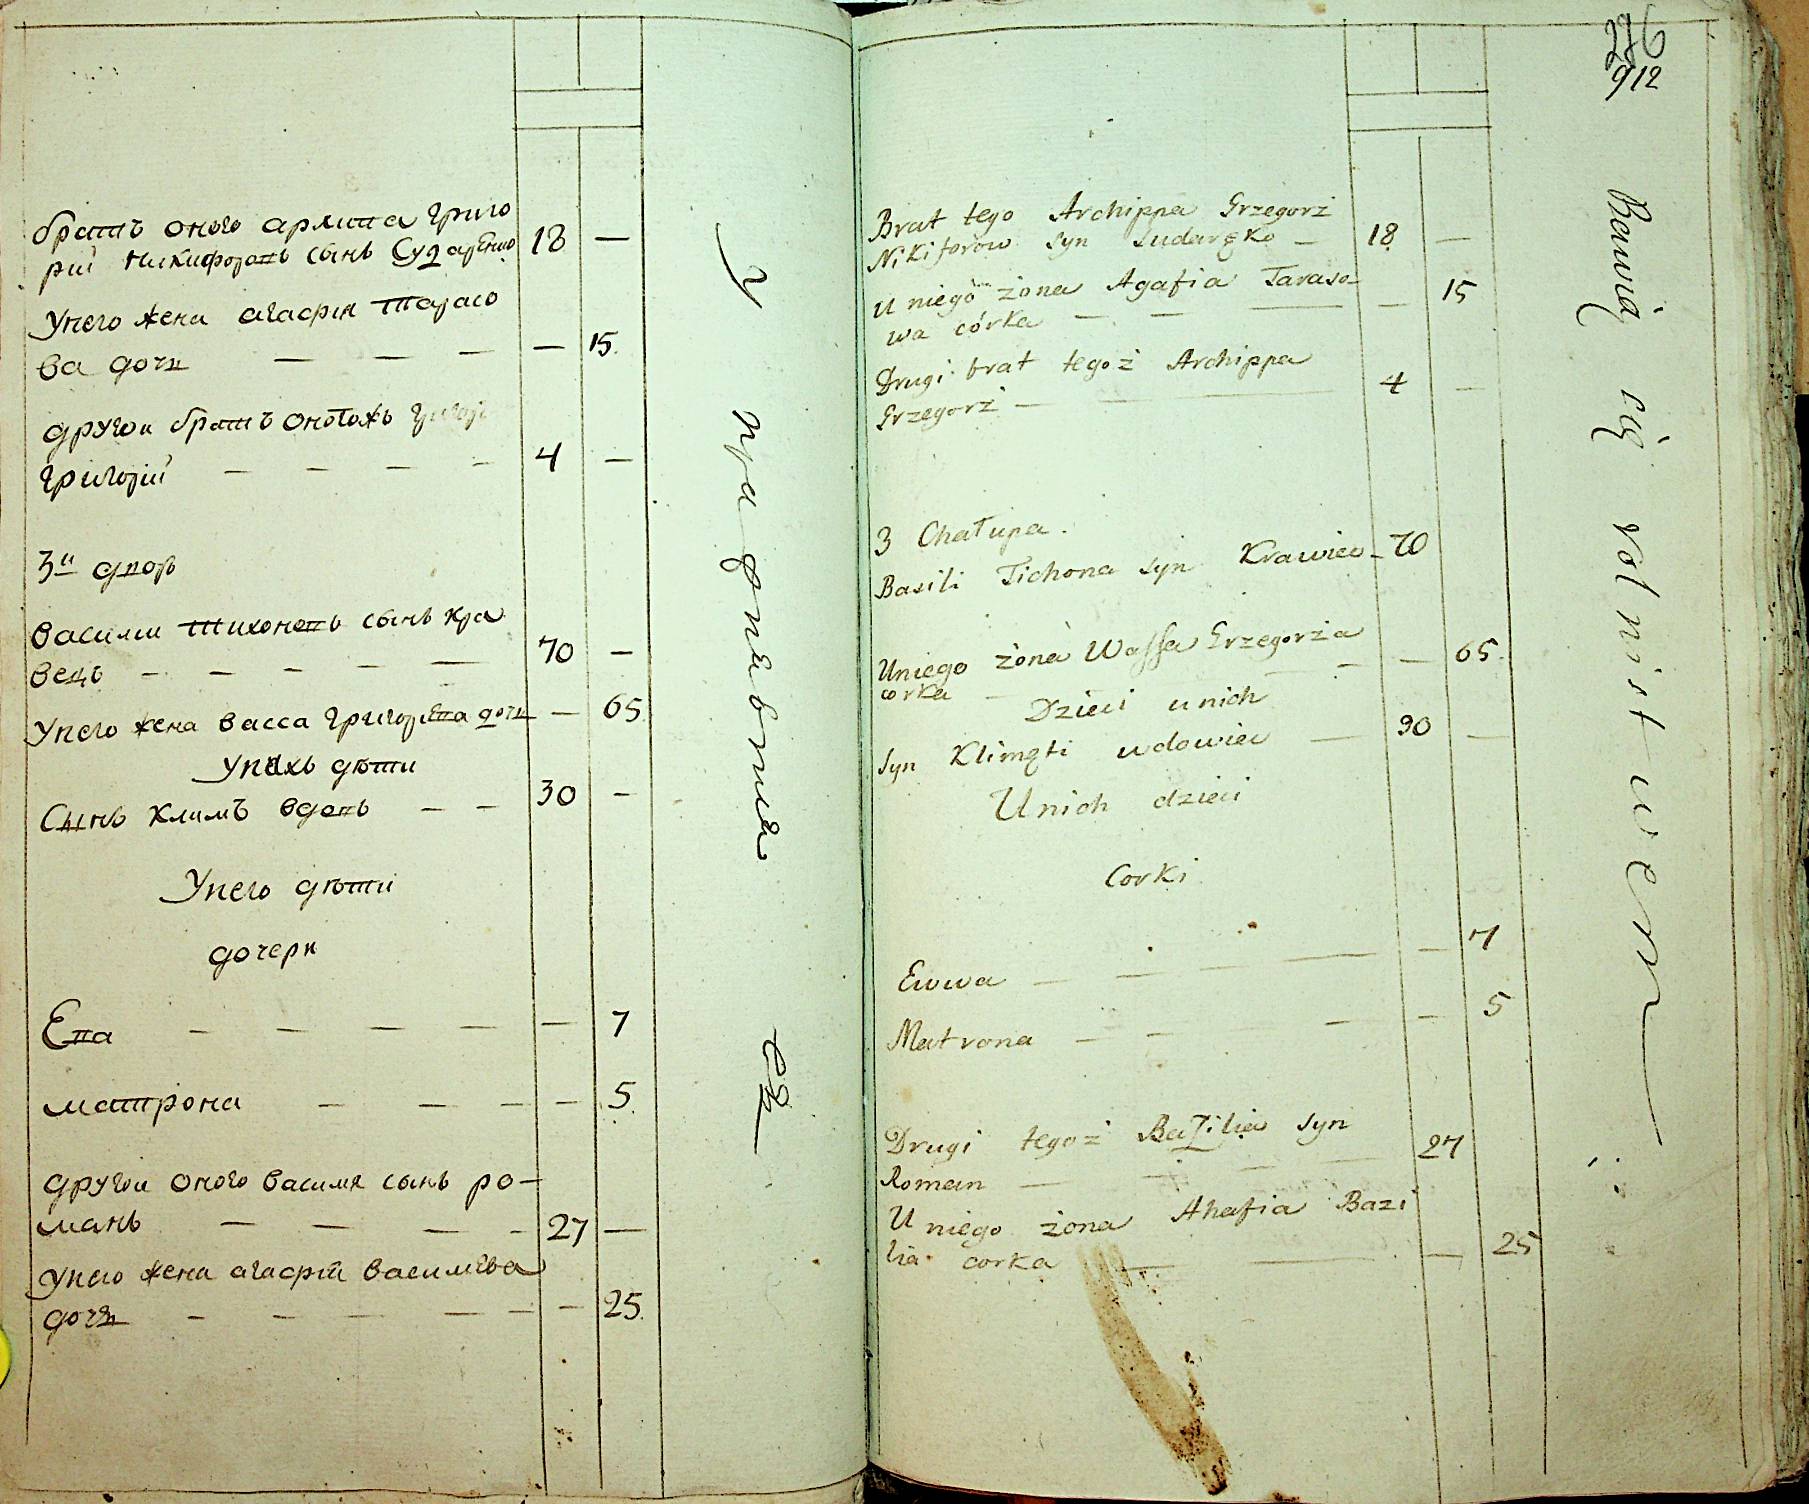 братъ оного архипа григо
рий никифоровъ сынъ Сударенко 18 —
Унего жена агафия тарасо
ва дочь — — — — 15
другои братъ оногожъ
григорий — — — — 4 —
3й дворъ
василии тихоновъ сынъ кра
вецъ — — — — — 70 —
Унего жена васса григориева дочь — 65
Унихъ дѣти
Сынъ климъ вдовъ — — 30 —
Унего дѣти
дочери
Евва — — — — — 7
матрона — — — — 5
другои оного василия сынъ ро-
манъ — — — — 27 —
Унего жена агафия василиева
дочь — — — — — — 25
У
276
912
Brat tego Archippa Grzegorz
Nikiforow syn Sudaręko — 18 —
U niego żona Agafia Taraso-
wa córka — — — — 15
Drugi brat tegoż Archippa
Grzegorz — — 4 —
3 Chałupa.
Basili Tichona syn Krawiec - 70
Uniego żona Wassa Grzegorża
corka — — — — 65
Dzieci unich
Syn Klimęti wdowiec — 30 —
Unich dzieci
Corki
Ewwa — — — — — 7
Matrona — — — — 5
Drugi tegoż Bazilia syn
Roman — — — — 27
U niego żona Ahafia Bazi
lia corka — — — 25
Bawią się rolnistwem